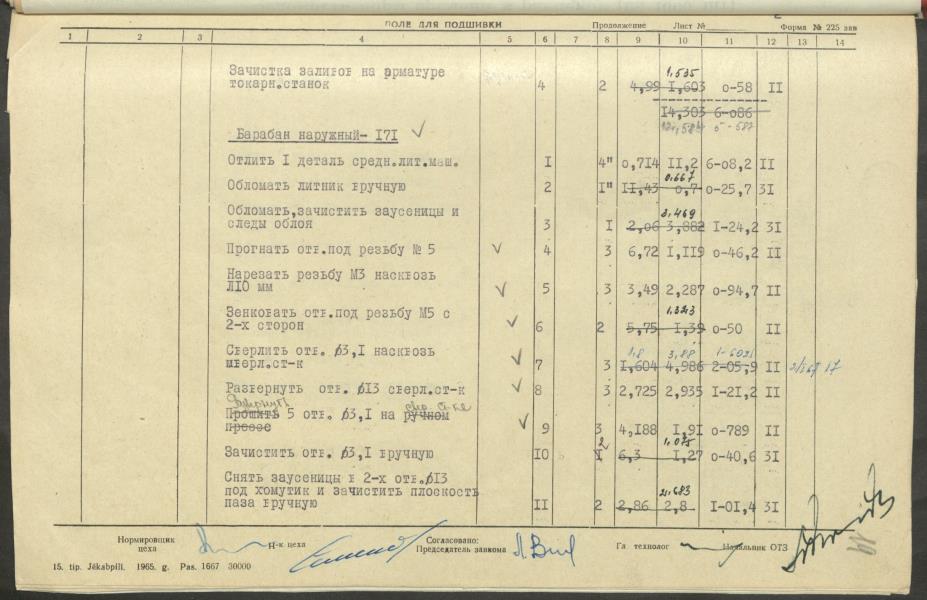 ПОЛЕ ДЛЯ ПОДШИВКИ Продолжение Лист № Форма № 225 зав
1 2 3 4 5 6 7 8 9 10 11 12 13 14
1,535
Зачистка заливов на арматуре
токарн.станок 4 2 4,99 I,603 0-58 II
I4,303 6-086
Барабан наружный- I7I ✓
Отлить I деталь средн.лит.маш. I 4" 0,7I4 II,2 6-08,2 II
0,667
Обломать литник вручную 2 I" II,43 0,7 0-25,7 3I
3,469
Обломать,зачистить заусеницы и
следы облоя 3 I 2,06 3,882 I-24,2 3I
Прогнать отв.под резьбу № 5 ✓ 4 3 6,72 I,II9 0-46,2 II
Нарезать резьбу М3 насквозь
Л10 мм ✓ 5 3 3,49 2,287 0-94,7 II
1,323
Зенковать отв.под резьбу М5 с
2-х сторон ✓ 6 2 5,75 I,39 0-50 II
1,8 3,88
Сверлить отв. ø3,I насквозь
мверл.ст-к ✓ 7 3 I,604 4,986 2-05,9 II
Развернуть отв. øI3 сверл.ст-к ✓ 8 3 2,725 2,935 I-2I,2 II
Прошить 5 отв. ø3,I на ручном
прессе ✓ 9 3 4,I88 I,9I 0-789 II
2 1,075
Зачистить отв. ø3,I вручную I0 I 6,3 I,27 0-40,6 3I
Снять заусеницы в 2-х отв.øI3
под хомутик и зачистить плоскость
2,683
паза вручную II 2 2,86 2,8 I-0I,4 3I
Нормировщик
цеха
Н-к цеха
Согласовано:
Председатель завкома
Гл. технолог
Начальник ОТЗ
15. tip. Jēkabpilī. 1965. g. Pas. 1667 30000